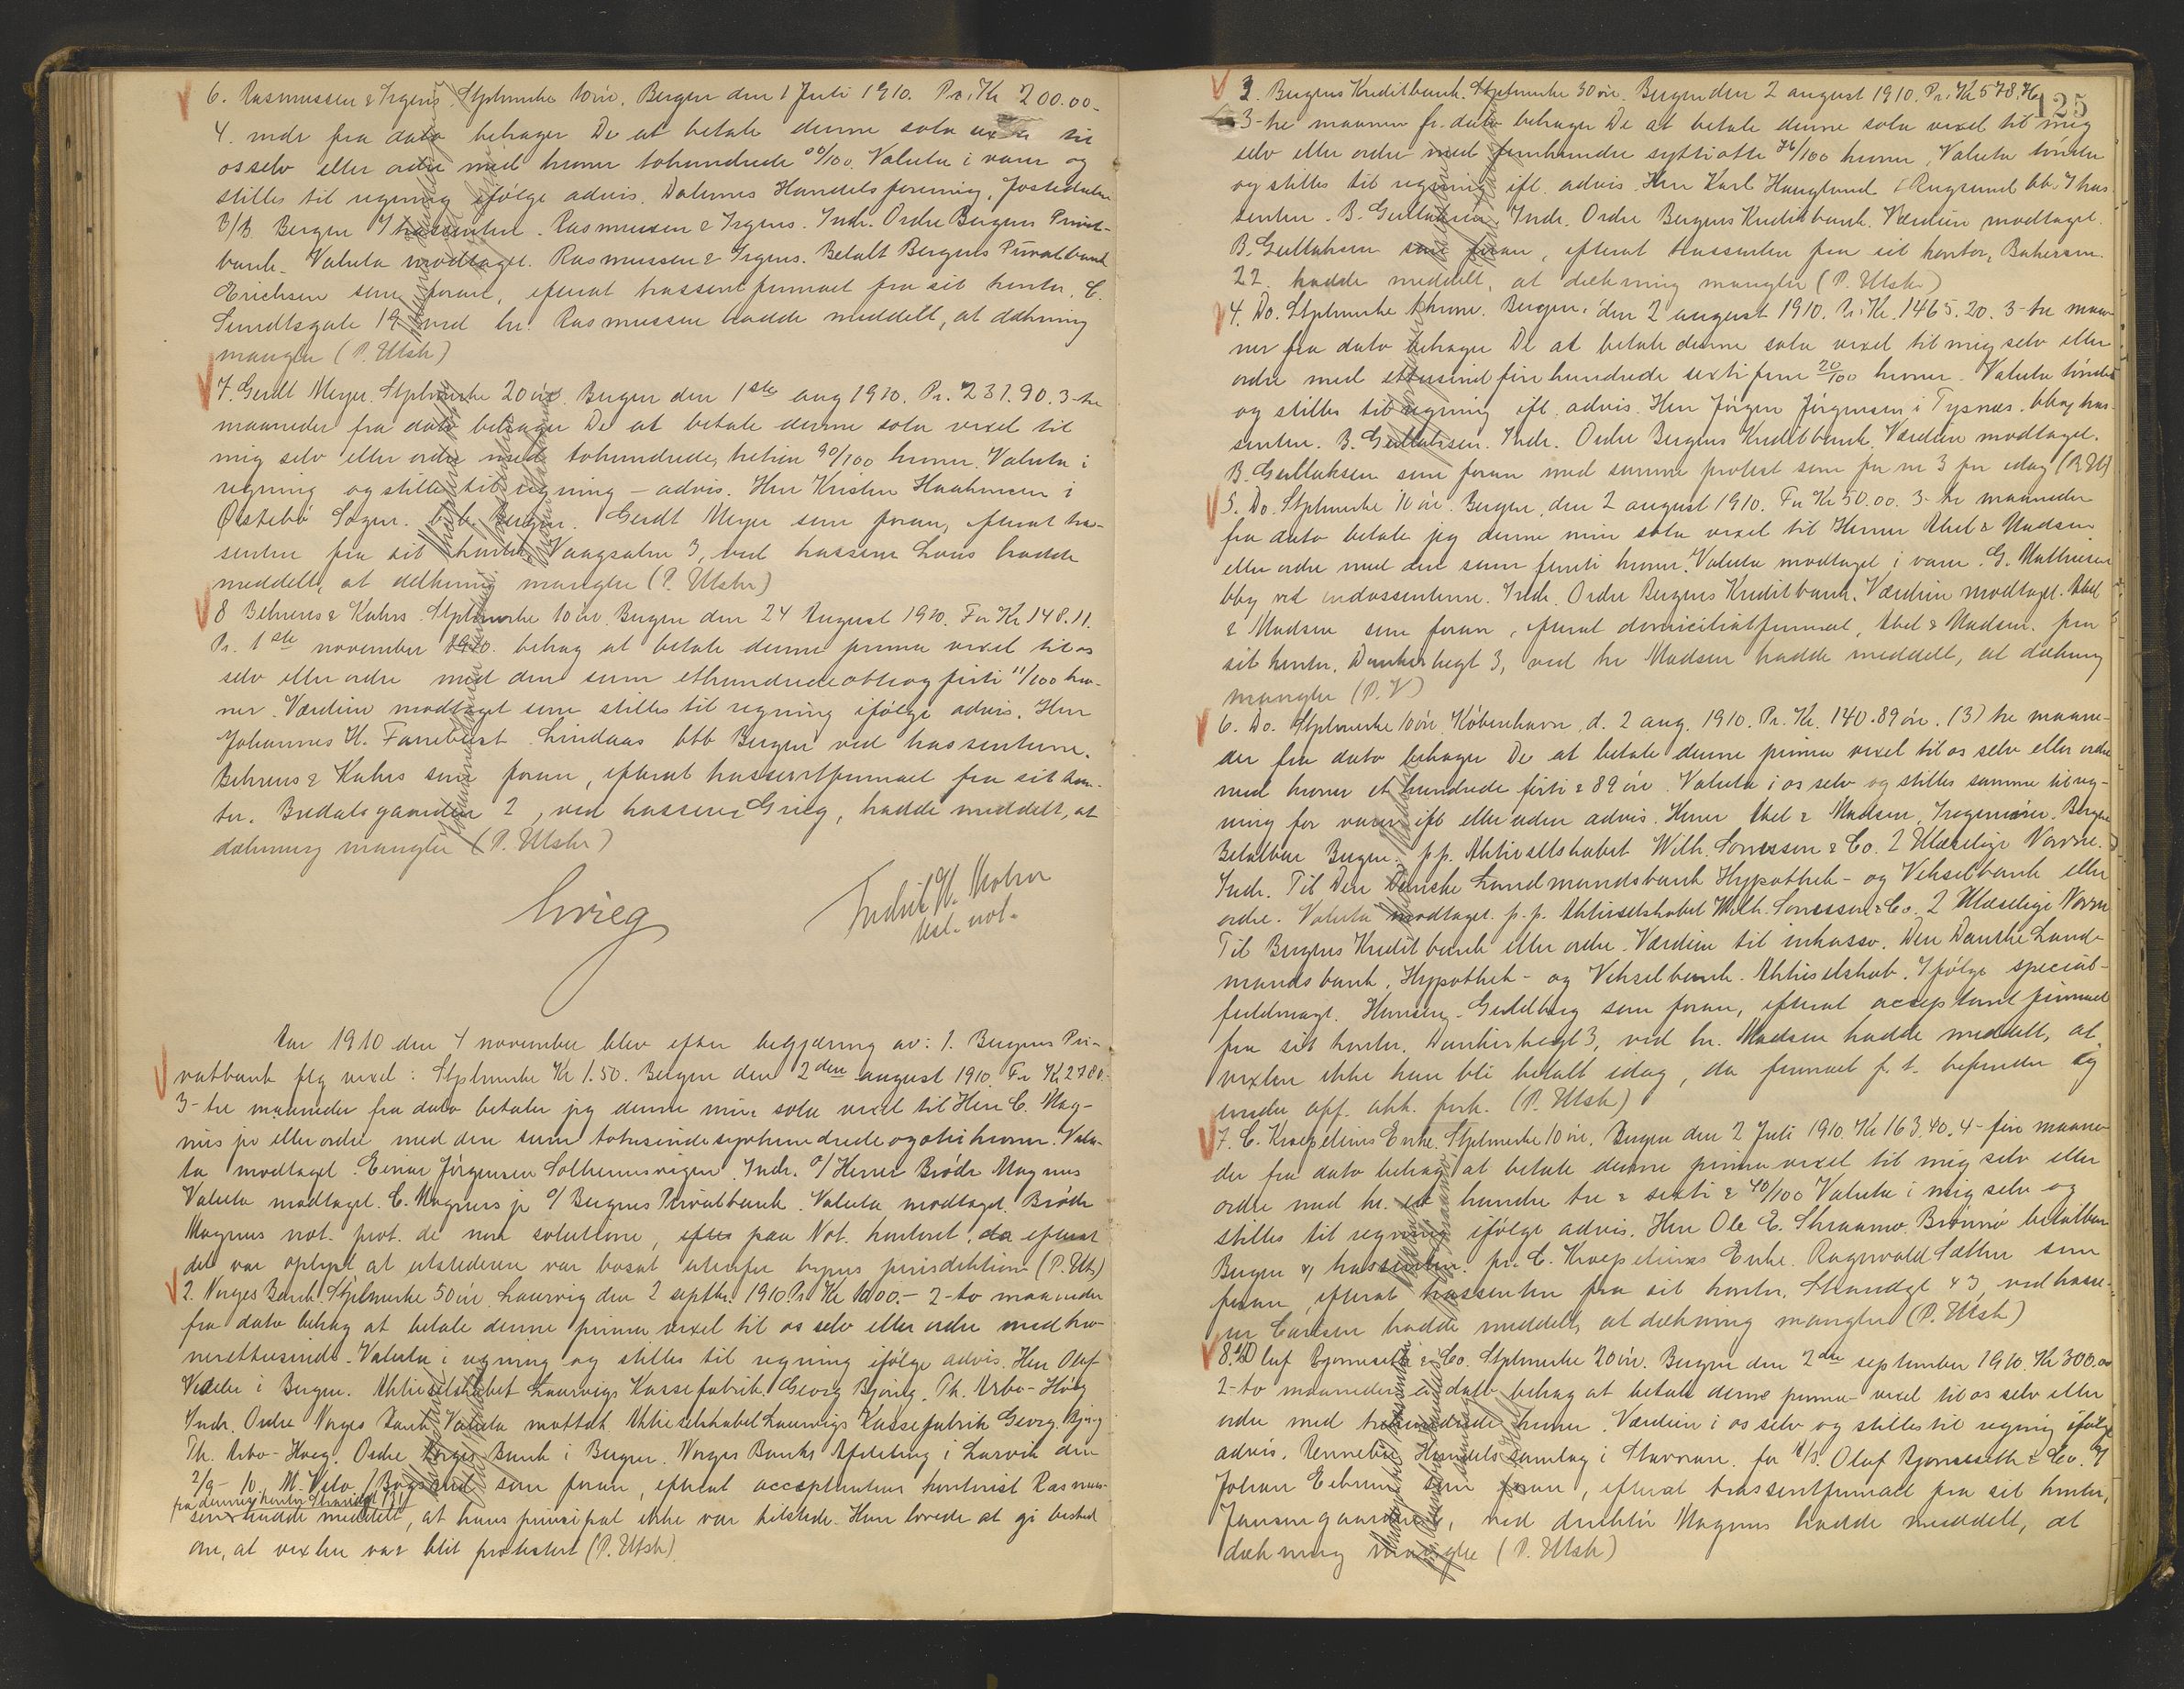 6. Rasmussen & Irgens. Stplmerke 10 øre. Bergen den 1 Juli 1910. Pr. Kr 200.00-
4. mdr fra dato behager De at betale denne sola vexel til
osselv eller ordre med kroner tohundrede 00/100. Valuta i varer og
stilles til regning ifølge advis. Dalernes Handelsforening, Jostedalen
B/B Bergen 7 trassenten. Rasmussen & Irgens. Indr. Ordre Bergens Privat-
bank. Valuta modtaget. Rasmussen & Irgens. Betalt Bergens Privatbank
Erichsen som foran, efterat trassentfirmaet fra sit kontor, C.
Sundtsgate 19 ved hr. Rasmussen hadde meddelt, at dækning
mangler (P. Utsk)
7. Gerdt Meyer. Stplmerke 20 øre. Bergen den 1ste aug 1910. Pr. 231.90. 3-tre
maaneder fra dato behager De at betale denne sola vexel til
mig selv eller ordre med tohundrede, tretien 90/100 kroner. Valuta i
regning og stilles til regning – advis. Herr Kristen Haakonsen i
Østebø Sogn. b.b. Bergen. Gerdt Meyer som foran, efterat tra-
senten fra sit kontor Vaagsalm 3, ved kasserer Lous hadde
meddelt, at dækning mangler (P. Utskr)
8 Behrens & Kahrs. Stplmerke 10 øre. Bergen den 24 August 1910. For Kr 148.11.
Pr. 1ste november 1910. behag at betale denne prima vexel til os
selv eller ordre med den sum ethundredeotteogfirti 11/100 kro-
ner. Værdien modtaget som stilles til regning ifølge advis. Herr
Johannes H. Fannebust Lindaas btb Bergen ved trassenterne.
Behrens & Kahrs som foran, efterat trassentfirmaet fra sit kon-
tor. Bredalsgaarden 2, ved kasserer Grieg, hadde meddelt, at
dækning mangler (P. Utskr)
Grieg
Fredrik
Aar 1910 den 4 november blev efter begjæring av: 1. Bergens Pri-
vatbank flg vexel: Stplmerke Kr 1.50. Bergen den 2den august 1910. For Kr 2780.
3-tre maaneder fra dato betaler jeg denne min sola vexel til Herr C. Mag-
nus jr eller ordre med den sum totusindesyvhundredeogotti kroner. Valu-
ta modtaget. Einar Jørgensen Solheimsvigen. Indr. o/ Herrer Brødr Magnus
Valuta modtaget. C. Magnus jr o/ Bergens Privatbank. Valuta modtaget. Brødr
Magnus not. prot. de non solutione, efter paa Not. kontoret, da efterat
det var oplyst at utstederen var bosat utenfor byens jurisdiktion (P. Utsk)
2. Norges Bank. Stplmerke 50 øre. Laurvig den 2 septbr. 1910. Pr Kr 1000.– 2-to maaneder
fra dato behag at betale denne prima vexel til os selv eller ordre med kro-
nerettusinde. Valuta i regning og stilles til regning ifølge advis. Herr Olaf
Vedeler i Bergen. Aktieselskabet Laurvigs Kassefabrik. Georg Bjørig. Th. Arbo-Høeg
Indr. Ordre Norges Bank. Valuta mottat. Aktieselskabet Laurvigs Kassefabrik Georg. Bjørig
Th. Arbo-Høeg. Ordre Norges Bank i Bergen. Norges Banks Afdeling i Larvik den
2/9- 10. som foran, efterat acceptantens kontorist Rasmus-
fra dennes kontor Strandgt
sen hadde meddelt, at hans principal ikke var tilstede. Han lovede at gi besked
om, at vexlen var blit protestert (P. Utsk)
125
3. Bergens Kreditbank. Stplmerke 30 øre. Bergen den 2 august 1910. Pr. Kr 578.76
3-tre maaneder fr. dato behager De at betale denne sola vexel til mig
selv eller ordre med femhundre syttiotte 76/100 kroner. Valuta tønder
og stilles til regning ifl. advis. Herr Karl Hauglund i Rugsund bb. 7 tras-
senten. B. Gullaksen. Indr. Ordre Bergens Kreditbank. Værdien modtaget.
B. Gullaksen som foran, efterat trassenten fra sit kontor, Bakersm.
22. hadde meddelt, at dækning mangler (P. Utskr)
4. Do. Stplmerke 1 krone. Bergen, den 2 august 1910. Pr. Kr. 1465.20. 3-tre maane-
ner fra dato behager De at betale denne sola vexel til mig selv eller
ordre med ettusind fire hundrede sexti fem 20/100 kroner. Valuta tønder
og stilles til regning ifl. advis. Herr Jørgen Jørgensen i Tysnæs. bbog tras-
senten. B. Gullaksen. Indr. Ordre Bergens Kreditbank. Værdien modtaget.
B. Gullaksen som foran med samme protest som for nr 3 for idag (P. Ut)
5. Do. Stplmerke 10 øre. Bergen, den 2 august 1910. For Kr 50.00. 3-tre maaneder
fra dato betaler jeg denne min sola vexel til Herrer Abel & Madsen
eller ordre med den sum femti kroner. Valuta modtaget i varer. G. Mathiesen
bbg ved indossenterne. Indr. Ordre Bergens Kreditbank. Værdien modtaget. Abel
& Madsen som foran, efterat domiciliatfirmaet, Abel & Madsen. fra
sit kontor, Dankerhagt 3, ved hr Madsen hadde meddelt, at dækning
mangler (P. V)
6. Do. Stplmerke 10 øre. København, d. 2 aug. 1910. Pr. Kr. 140.89 øre. (3) tre maane-
der fra dato behager De at betale denne prima vexel til os selv eller ordre
med kroner et hundrede firti & 89 øre. Valuta i os selv og stilles samme til reg-
ning for varer ifl eller uden advis. Herrer Abel & Madsen, Bergen
Betalbar Bergen. p.p. Aktieselskabet Wilh. Sonesson & Co. 2 Ulæselige Navne.
Indr. Til Den Danske Landmandsbank Hypothek- og Vekselbank eller
ordre. Valuta modtaget. p.p. Aktieselskabet Wilh. Sonesson & Co. 2 Ulæselige Navne
Til Bergens Kreditbank eller ordre. Værdien til inkasso. Den Danske Land-
mandsbank, Hypothek- og Vekselbank. Aktieselskab. Ifølge special-
fuldmagt. Hansen. Guldberg som foran, efterat acceptantfirmaet
fra sit kontor. Dankerhagt 3, ved hr. Madsen hadde meddelt, at
vexlen ikke kan bli betalt idag, da firmaet f.t. befinder sig
under off. akk. forh. (P. Utsk)
7. C. Kroepeliens Enke. Stplmerke 10 øre. Bergen den 2 Juli 1910. Kr 163.40. 4-fire maane-
der fra dato behag at betale denne prima vexel til mig selv eller
ordre med kr. et hundre tre & sexti & 40/100 Valuta i mig selv og
stilles til regning ifølge advis. Herr Ole E. Skraamo. Brømnø betalbar
Bergen 7 trassenten. pr. C. Kroepeliens Enke. Ragnvald Sætter som
foran, efterat trassenten fra sit kontor, Strandgt 43, ved kasse-
rer Carlsen hadde meddelt, at dækning mangler (P. Utsk)
8. A/S Oluf Bjørneseth & Co. Stplmerke 20 øre. Bergen den 2den september 1910. Kr 300.00
2-to maaneder a dato behag at betale denne prima vexel til os selv eller
ordre med trehundrede kroner. Værdien i os selv og stilles til regning ifølge
advis. Rennebu Handelssamlag i Stavnan. for A/S. Olaf Bjørneseth & Co.
Johan som foran, efterat trassentfirmaet fra sit kontor,
Jansengaarden, ved direktør Magnus hadde meddelt, at
dækning mangler (P. Utsk)